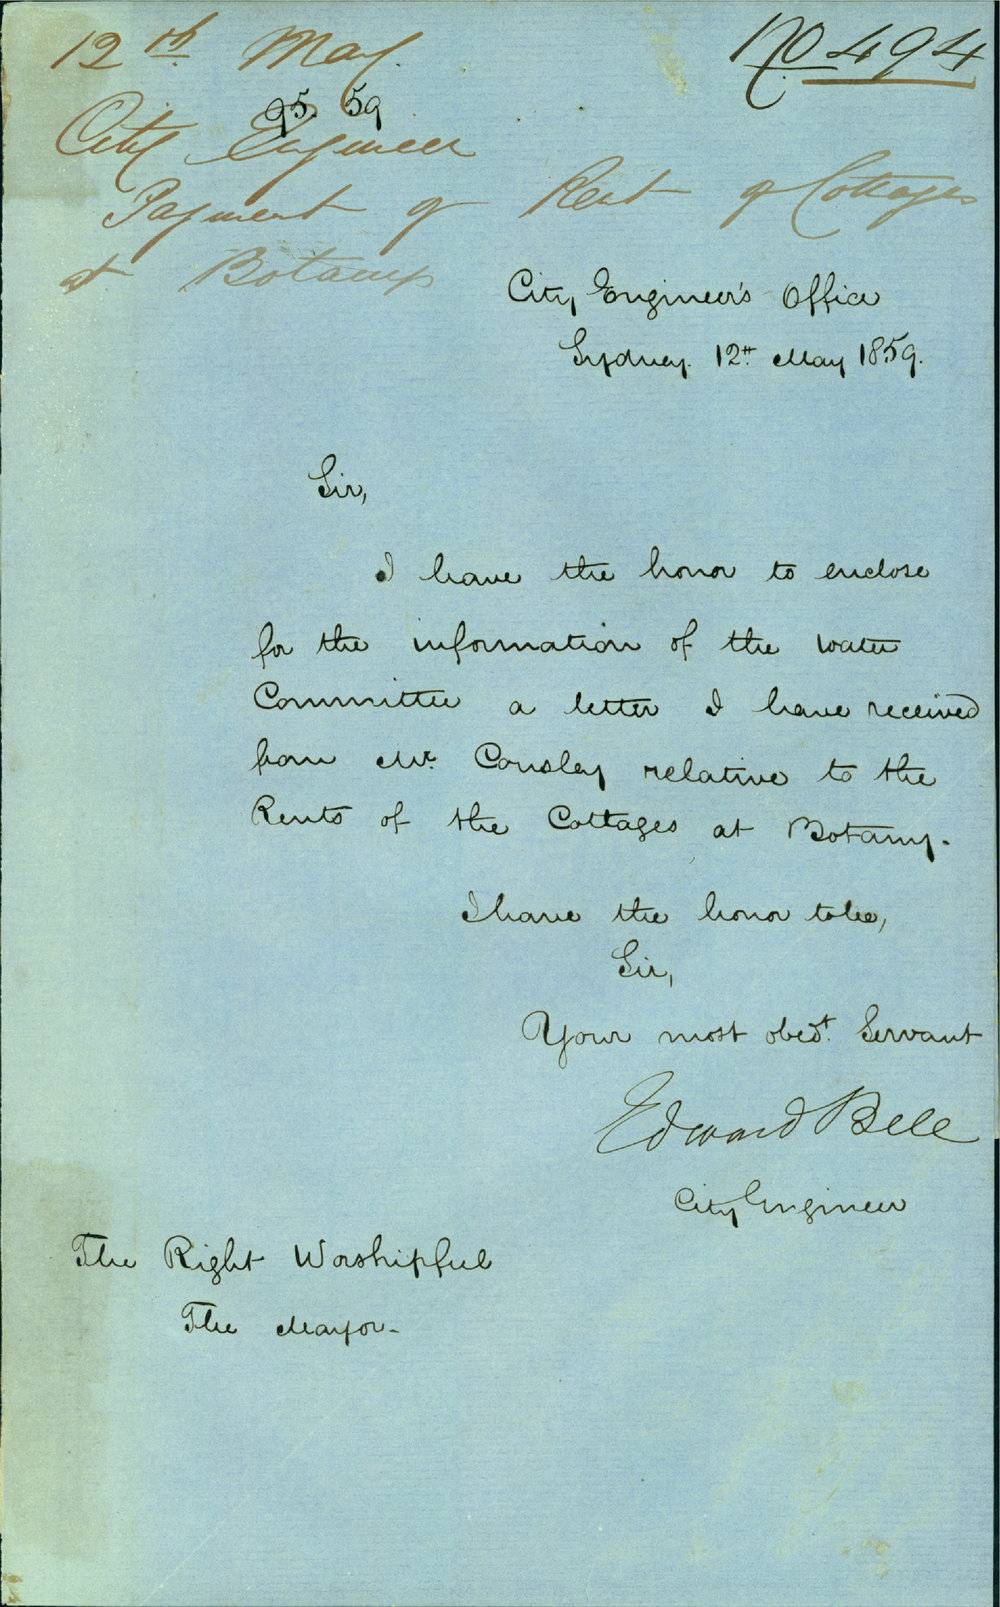 12th May.
No 494
95 59
City Engineer
Payment of Rent of Cottages
at Botany
City Engineer's Office
Sydney. 12th May 1859.
Sir,
I have the honor to enclose
for the information of the Water
Committee a letter I have received
from Mr. Consley relative to the
Rents of the Cottages at Botany.
I have the honor to be,
Sir,
Your most obedt. Servant
Edward Bell
City Engineer
The Right Worshipful
The Mayor-